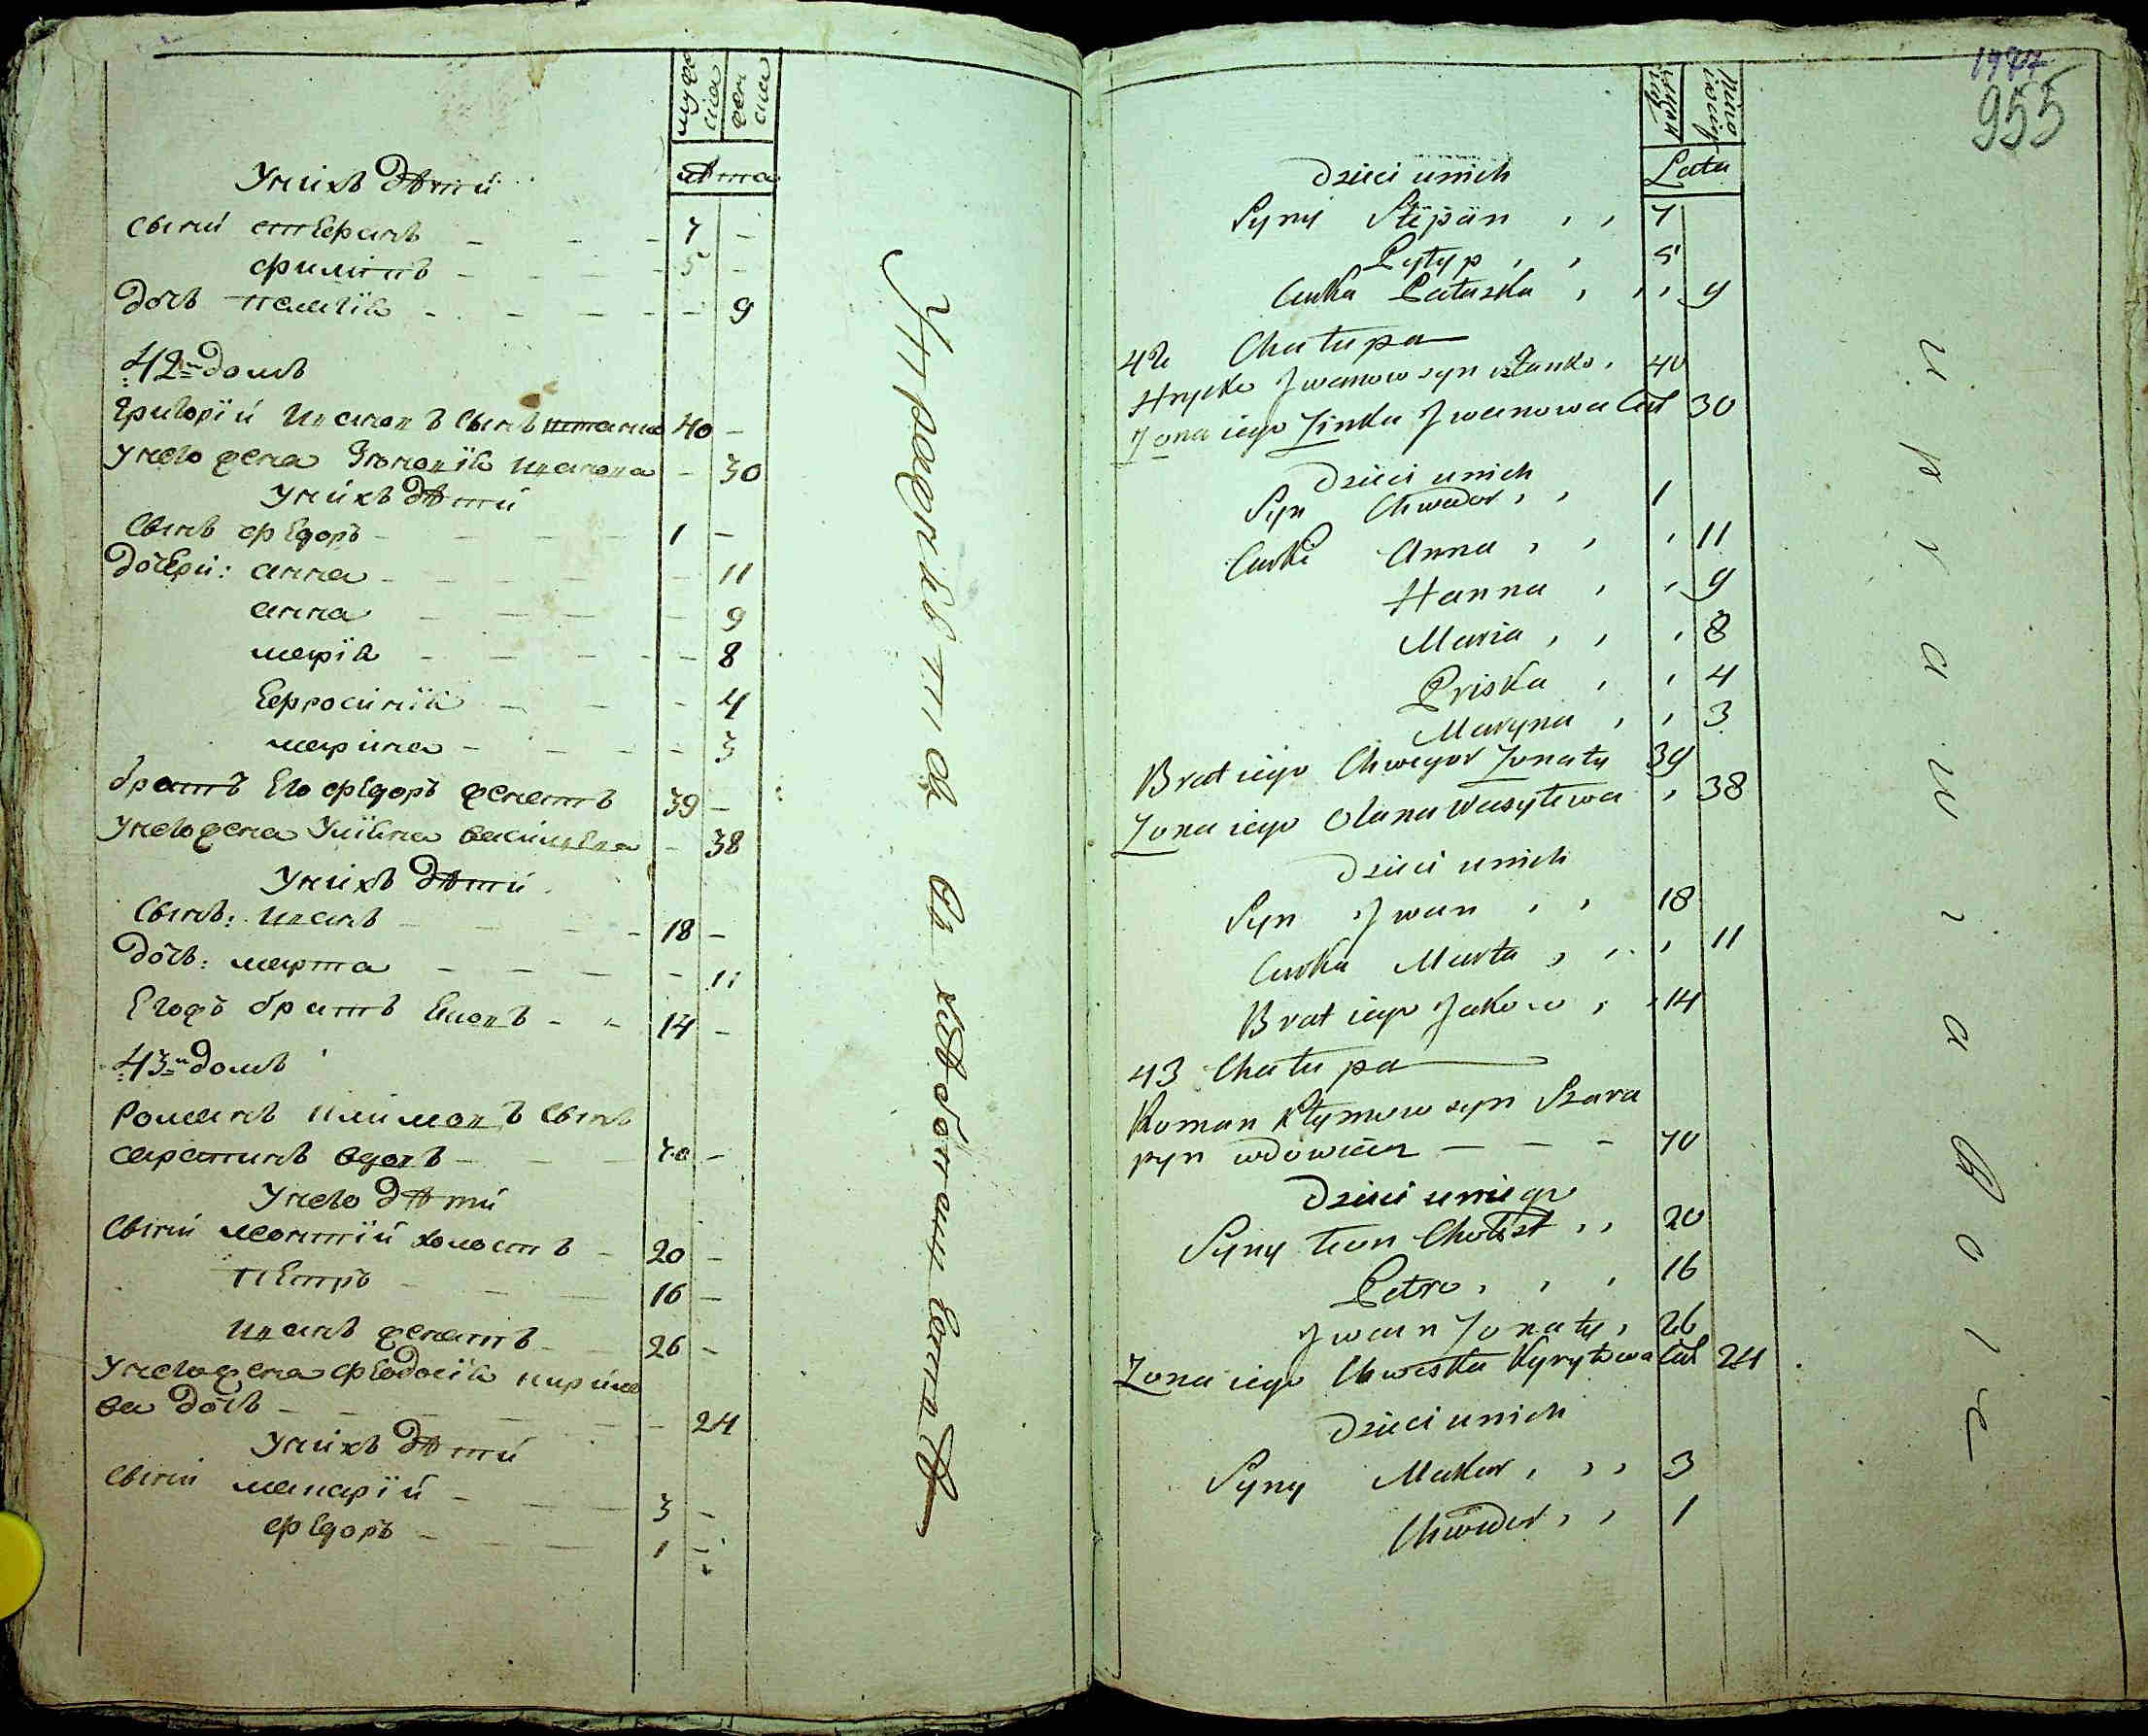 мужеска
женска
лѣта
У нихъ дѣти
Сыны стефанъ 7 -
филипъ 5 -
дочь пелагія - 9
42й домъ
григорій Ивановъ сынъ штанко 40 -
у него жена Зѣновія Иванова - 30
У нихъ дѣти
Сынъ федоръ 1 -
дочери: анна - 11
анна - 9
марія - 8
Ефросинія - 4
марина - 3
братъ Его федоръ женатъ 39 -
у него жена Уліяна василева - 38
У нихъ дѣти
Сынъ: иванъ 18 -
дочь: марта - 11
Егожъ братъ Яковъ 14 -
43й домъ
Романъ климовъ сынъ
сарапинъ вдовъ 70 -
У него дѣти
Сыны леонтій холостъ 20 -
петръ 16 -
иванъ женатъ 26 -
у него жена феодосія кирило
ва дочь - 24
У нихъ дѣти
Сыны макарій 3 -
федоръ 1 -
1977
955
Lata
Dzieci u nich
Syny Stepan 7
Pyłyp 5
Curka Pałaszka 9
42 Chałupa
Hrycko Iwanow syn sztanko 40
Zona iego Zinka Iwanowa Cur 30
Dzieci u nich
Syn Chwedor 1
Curki Anna 11
Hanna 9
Maria 8
Priska 4
Maryna 3
Brat iego Chwegor Zonaty 39
Zona iego Olana Wasylewa 38
Dzieci u nich
Syn Iwan 18
Curka Marta 11
Brat iego Jakow 14
43 Chałupa
Roman Kłymow syn Szara
pyn wdowiec 70
Dzieci u niego
Syny Leon Chołost 20
Petro 16
Iwan Zonaty 26
Zona iego Chweska Kyryłowa Cur 24
Dzieci u nich
Syny Makar 3
Chwedor 1